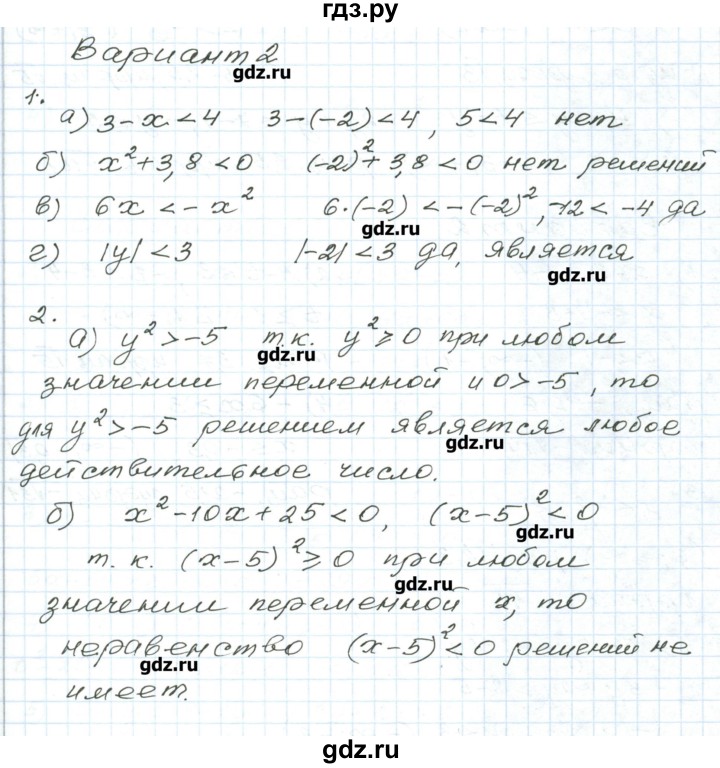 гдз.ру
Вариант 2
gdz.ru
1.
а) 3-x<4 3-(-2)<4, 5<4 нет
б) x²+3,8<0 (-2)²+3,8<0 нет решений
в) 6x<-x² 6·(-2)<-(-2)², -12<-4 да
gdz.ru
г) |y|<3 |-2|<3 да, является
gdz.ru
2.
а) y²>-5 т.к. y²⩾0 при любом
gdz.ru
значении переменной и 0>-5, то
для y²>-5 решением является любое
gdz.ru
действительное число.
б) x²-10x+25<0, (x-5)²<0
gdz.ru
т.к. (x-5)²⩾0 при любом
gdz.ru
значении переменной x, то
неравенство (x-5)²<0 решений не
gdz.ru
имеет.
gdz.ru